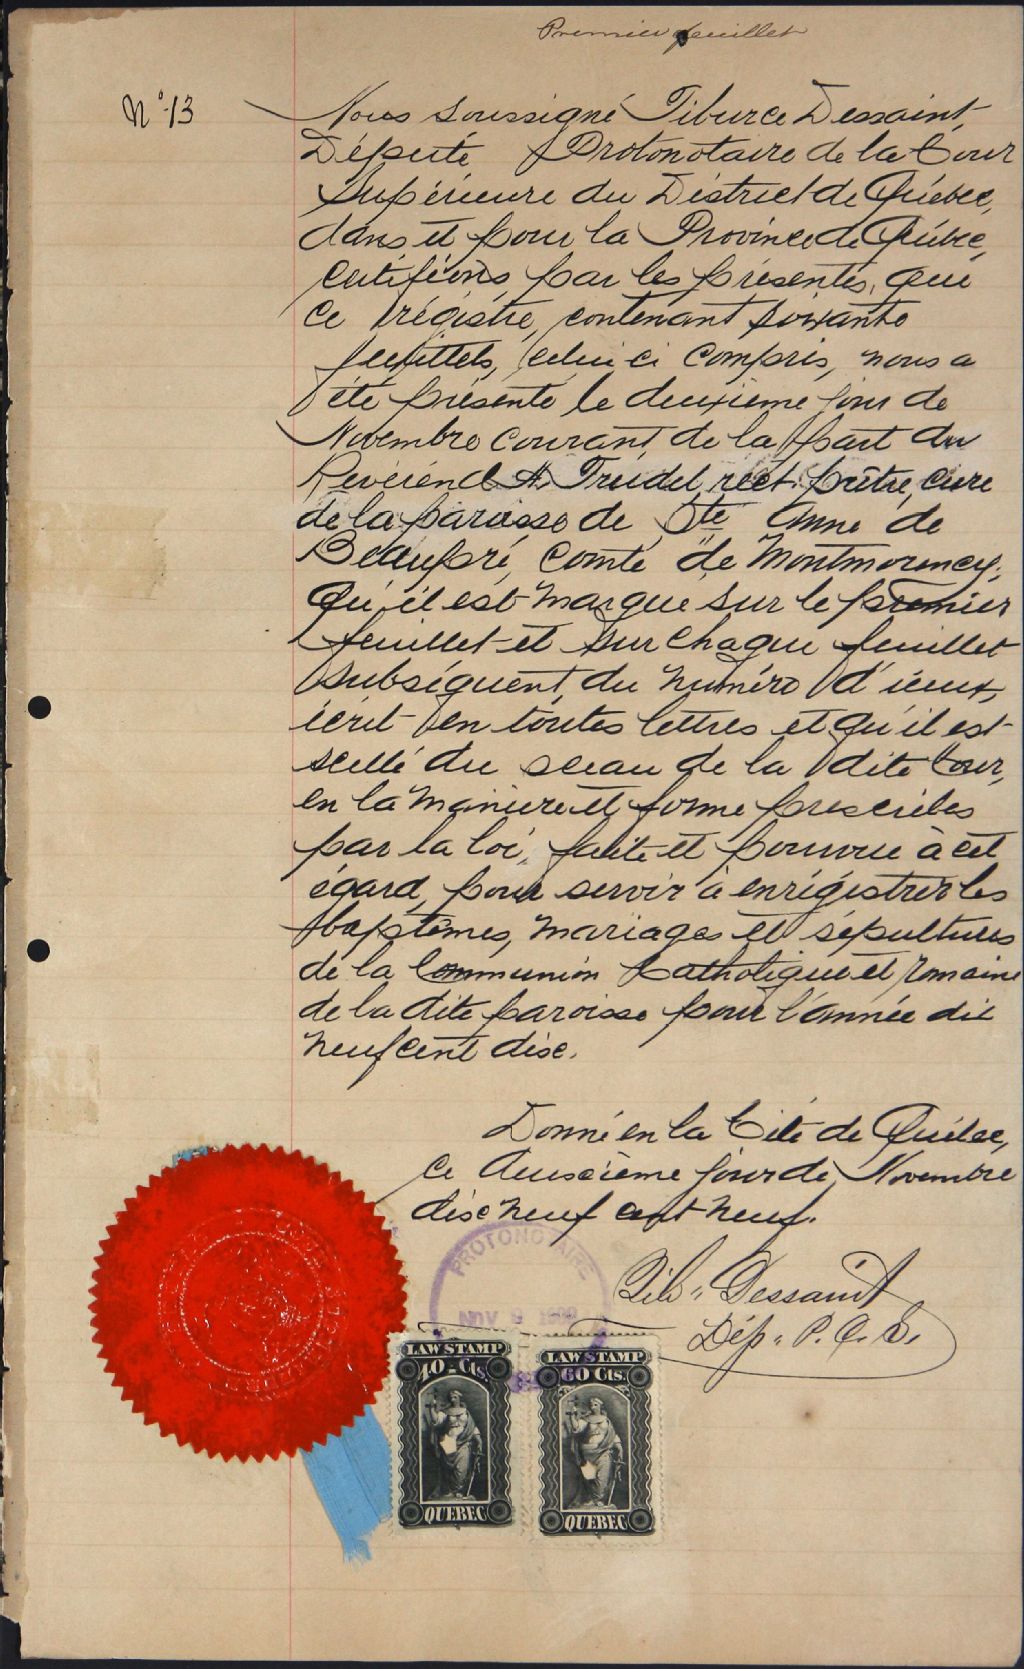 Premier feuillet
No 13
Nous soussigné Tiburce Dessaint,
Député Protonotaire de la Cour
Supérieure du District de Québec,
dans et pour la Province de Québec,
certifions, par les présentes, que
ce régistre, contenant soixante
feuillets, celui ci compris, nous a
été présenté le deuxième jour de
Novembre courant, de la part du
Révérend A. Trudel, rect. prêtre, curé
de la paroisse de Ste Anne de
Beaupré, comté de Montmorency;
Qu'il est marqué sur le premier
feuillet et sur chaque feuillet
subséquent, du numéro d'iceux,
écrit en toutes lettres et qu'il est
scellé du sceau de la dite Cour,
en la manière et forme prescrites
par la loi, faite et pourvue à cet
égard, pour servir à enrégistrer les
baptêmes, mariages et sépultures
de la Communion Catholique et romaine
de la dite paroisse pour l'année dix
neuf cent dix.
Donné en la Cité de Québec,
ce deuxième jour de Novembre
dix neuf cent neuf.
Tib. Dessaint
Dép. P. C. S.
PROTONOTAIRE
NOV 9 1909
LAW STAMP
40 Cts.
QUEBEC
LAW STAMP
60 Cts.
QUEBEC